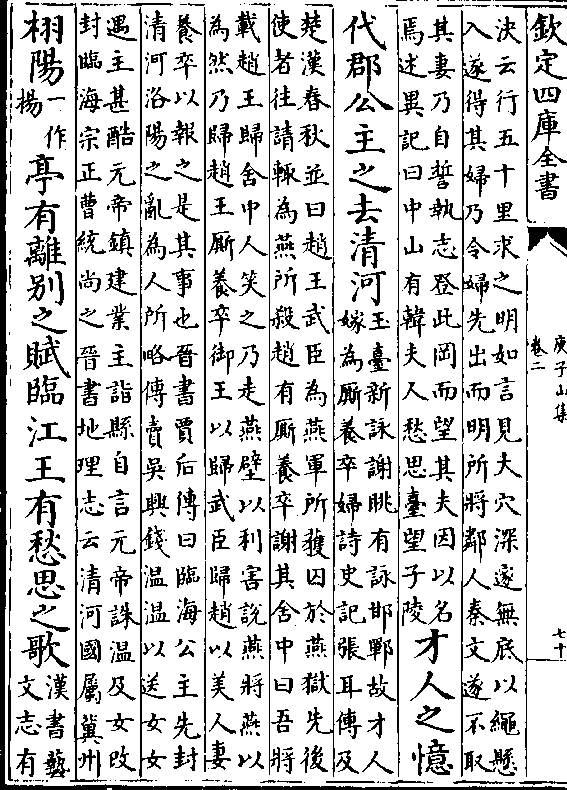 欽定四庫全書
庾子山集
卷二
七十
決云行五十里求之明如言見大穴深邃無底以繩懸
入遂得其婦乃令婦先出而明所將鄰人秦文遂不取
其妻乃自誓執志登此岡而望其夫因以名
焉述異記曰中山有韓夫人愁思臺望子陵
才人之憶
代郡公主之去清河
玉臺新詠謝朓有詠邯鄲故才人
嫁為廝養卒婦詩史記張耳傳及
楚漢春秋並曰趙王武臣為燕軍所獲囚於燕獄先後
使者往請輒為燕所殺趙有廝養卒謝其舍中曰吾將
載趙王歸舍中人笑之乃走燕壁以利害說燕將燕以
為然乃歸趙王廝養卒御王以歸武臣歸趙以美人妻
養卒以報之是其事也晉書賈后傳曰臨海公主先封
清河洛陽之亂為人所略傳賣吳興錢温温以送女女
遇主甚酷元帝鎮建業主詣縣自言元帝誅温及女改
封臨海宗正曹統尚之晉書地理志云清河國屬冀州
栩陽
一作
揚
亭有離别之賦臨江王有愁思之歌
漢書藝
文志有